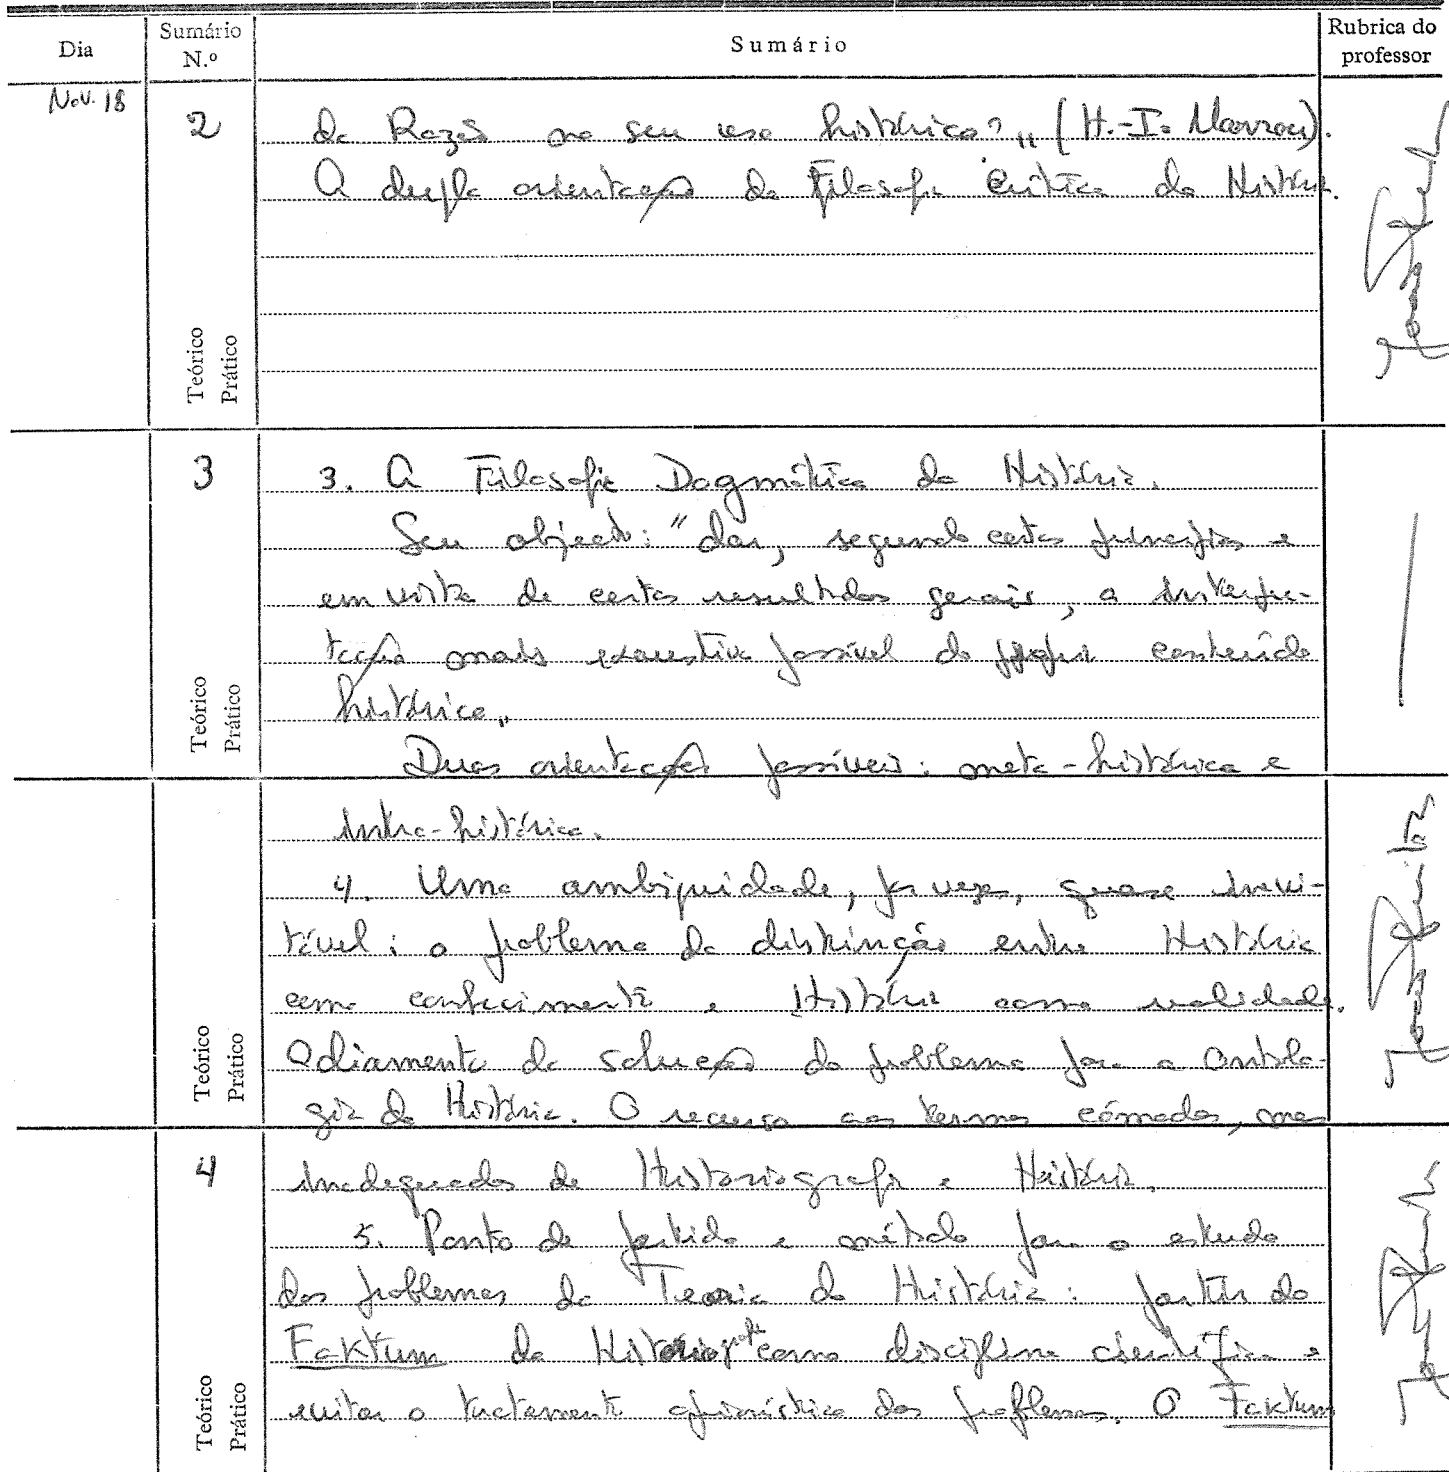 Dia
Sumário N.º
Sumário
Rubrica do professor
Nov. 18
2
da Razão no seu uso histórico?" (H.-I. Marrou).
A dupla orientação da Filosofia Crítica da História.
Teórico
Prático
3
3. A Filosofia Dogmática da História.
Seu objecto: "dar, segundo certos princípios e
em vista de certos resultados gerais, a interpre-
tação mais exaustiva possível do próprio conteúdo
histórico"
Teórico
Prático
Duas orientações possíveis: meta-histórica e
intra-histórica.
4. Uma ambiguidade, por vezes, quase inevi-
tável: o problema da distinção entre História
como conhecimento e História como realidade.
Adiamento da solução do problema para a Ontolo-
gia da História. O recurso aos termos cómodos, mas
Teórico
Prático
4
inadequados de Historiografia e História.
5. Ponto de partida e método para o estudo
dos problemas da Teoria da História: partir do
Faktum da Historiografia como disciplina científica e
evitar o tratamento apriorístico dos problemas. O Faktum
Teórico
Prático